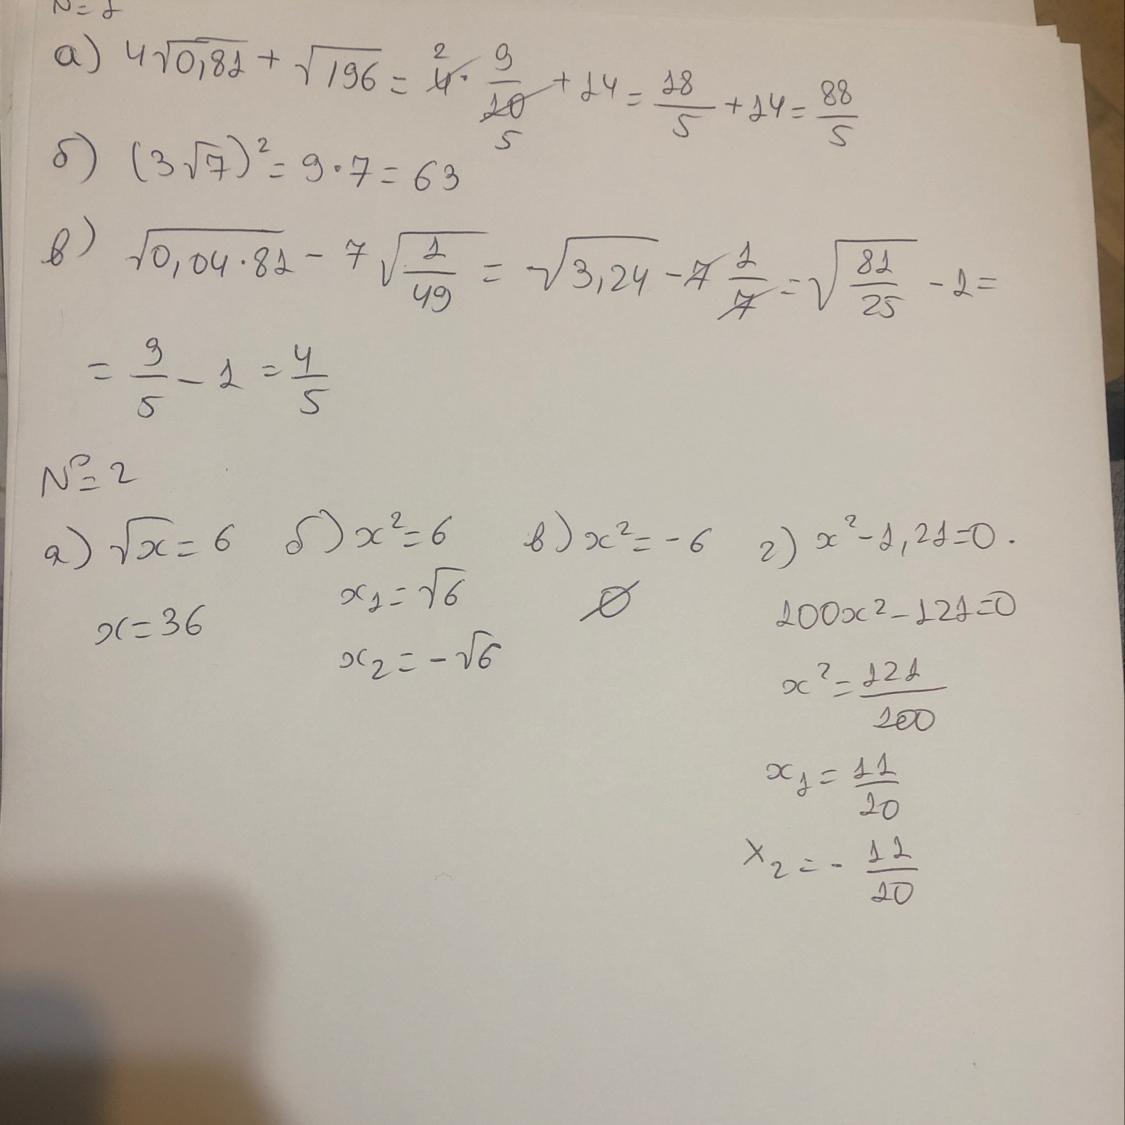 №1
а) 4√0,81 + √196 = 4 · 9/10 + 14 = 18/5 + 14 = 88/5
2
5
б) (3√7)² = 9 · 7 = 63
в) √0,04 · 81 - 7√1/49 = √3,24 - 7 1/7 = √81/25 - 1 =
= 9/5 - 1 = 4/5
№2
а) √x = 6 б) x² = 6 в) x² = -6 г) x² - 1,21 = 0.
x = 36 x₁ = √6 ∅ 100x² - 121 = 0
x₂ = -√6 x² = 121/100
x₁ = 11/10
x₂ = - 11/10